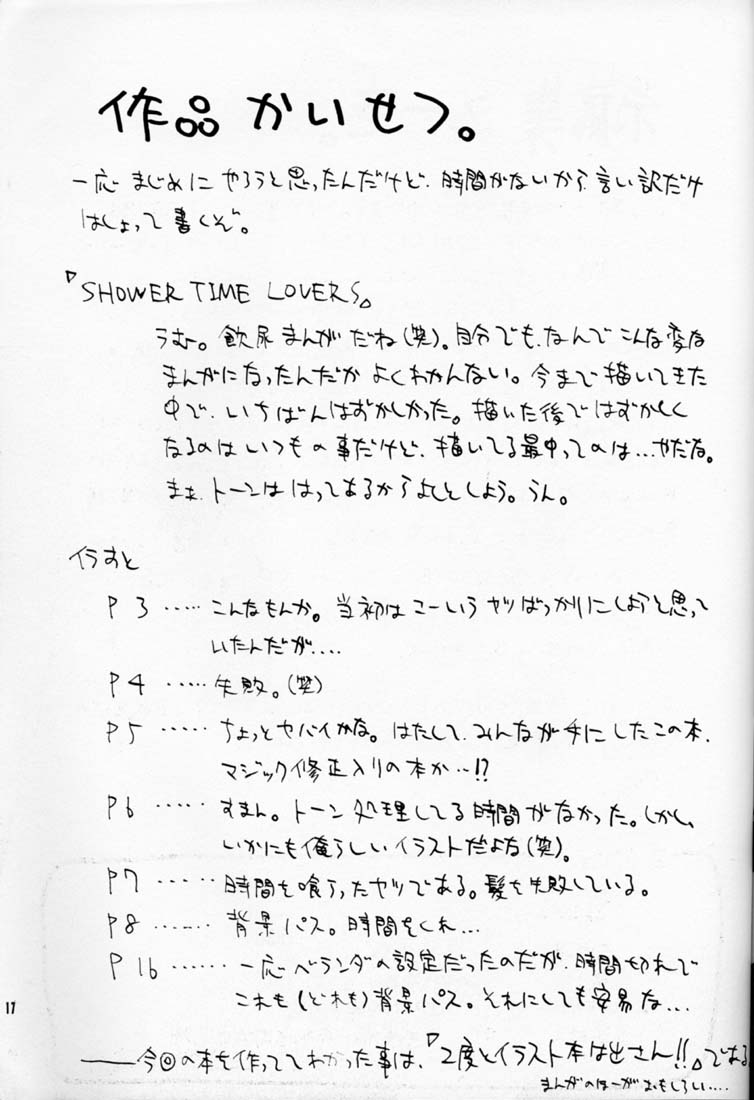 作品かいせつ。
一応まじめにやろうと思ったんだけど、時間がないから言い訳だけ
はしょって書くぞ。
『SHOWER TIME LOVERS』
うむ。飲尿まんがだね(笑)。自分でも、なんでこんな変な
まんがになったんだかよくわかんない。今まで描いてきた
中で、いちばんはずかしかった。描いた後ではずかしく
なるのはいつもの事だけど、描いてる最中ってのは…やだな。
まぁ、トーンははってあるからよしとしよう。うん。
イラすと
P3 ..... こんなもんか。当初はこーいうヤツばっかりにしようと思って
いたんだが....
P4 ..... 失敗。(笑)
P5 ..... ちょっとヤバイかな。はたして、みんなが手にしたこの本、
マジック修正入りの本か…!?
P6 ..... すまん。トーン処理してる時間がなかった。しかし、
いかにも俺らしいイラストだよな(笑)。
P7 ..... 時間を喰らったヤツである。髪を失敗している。
P8 ....... 背景パス。時間をくれ...
P16 ...... 一応ベランダの設定だったのだが、時間切れで
これも(どれも)背景パス。それにしても安易な...
17
——今回の本を作っててわかった事は、『2度とイラスト本は出さん!!』である
まんがのほーがおもしろい....